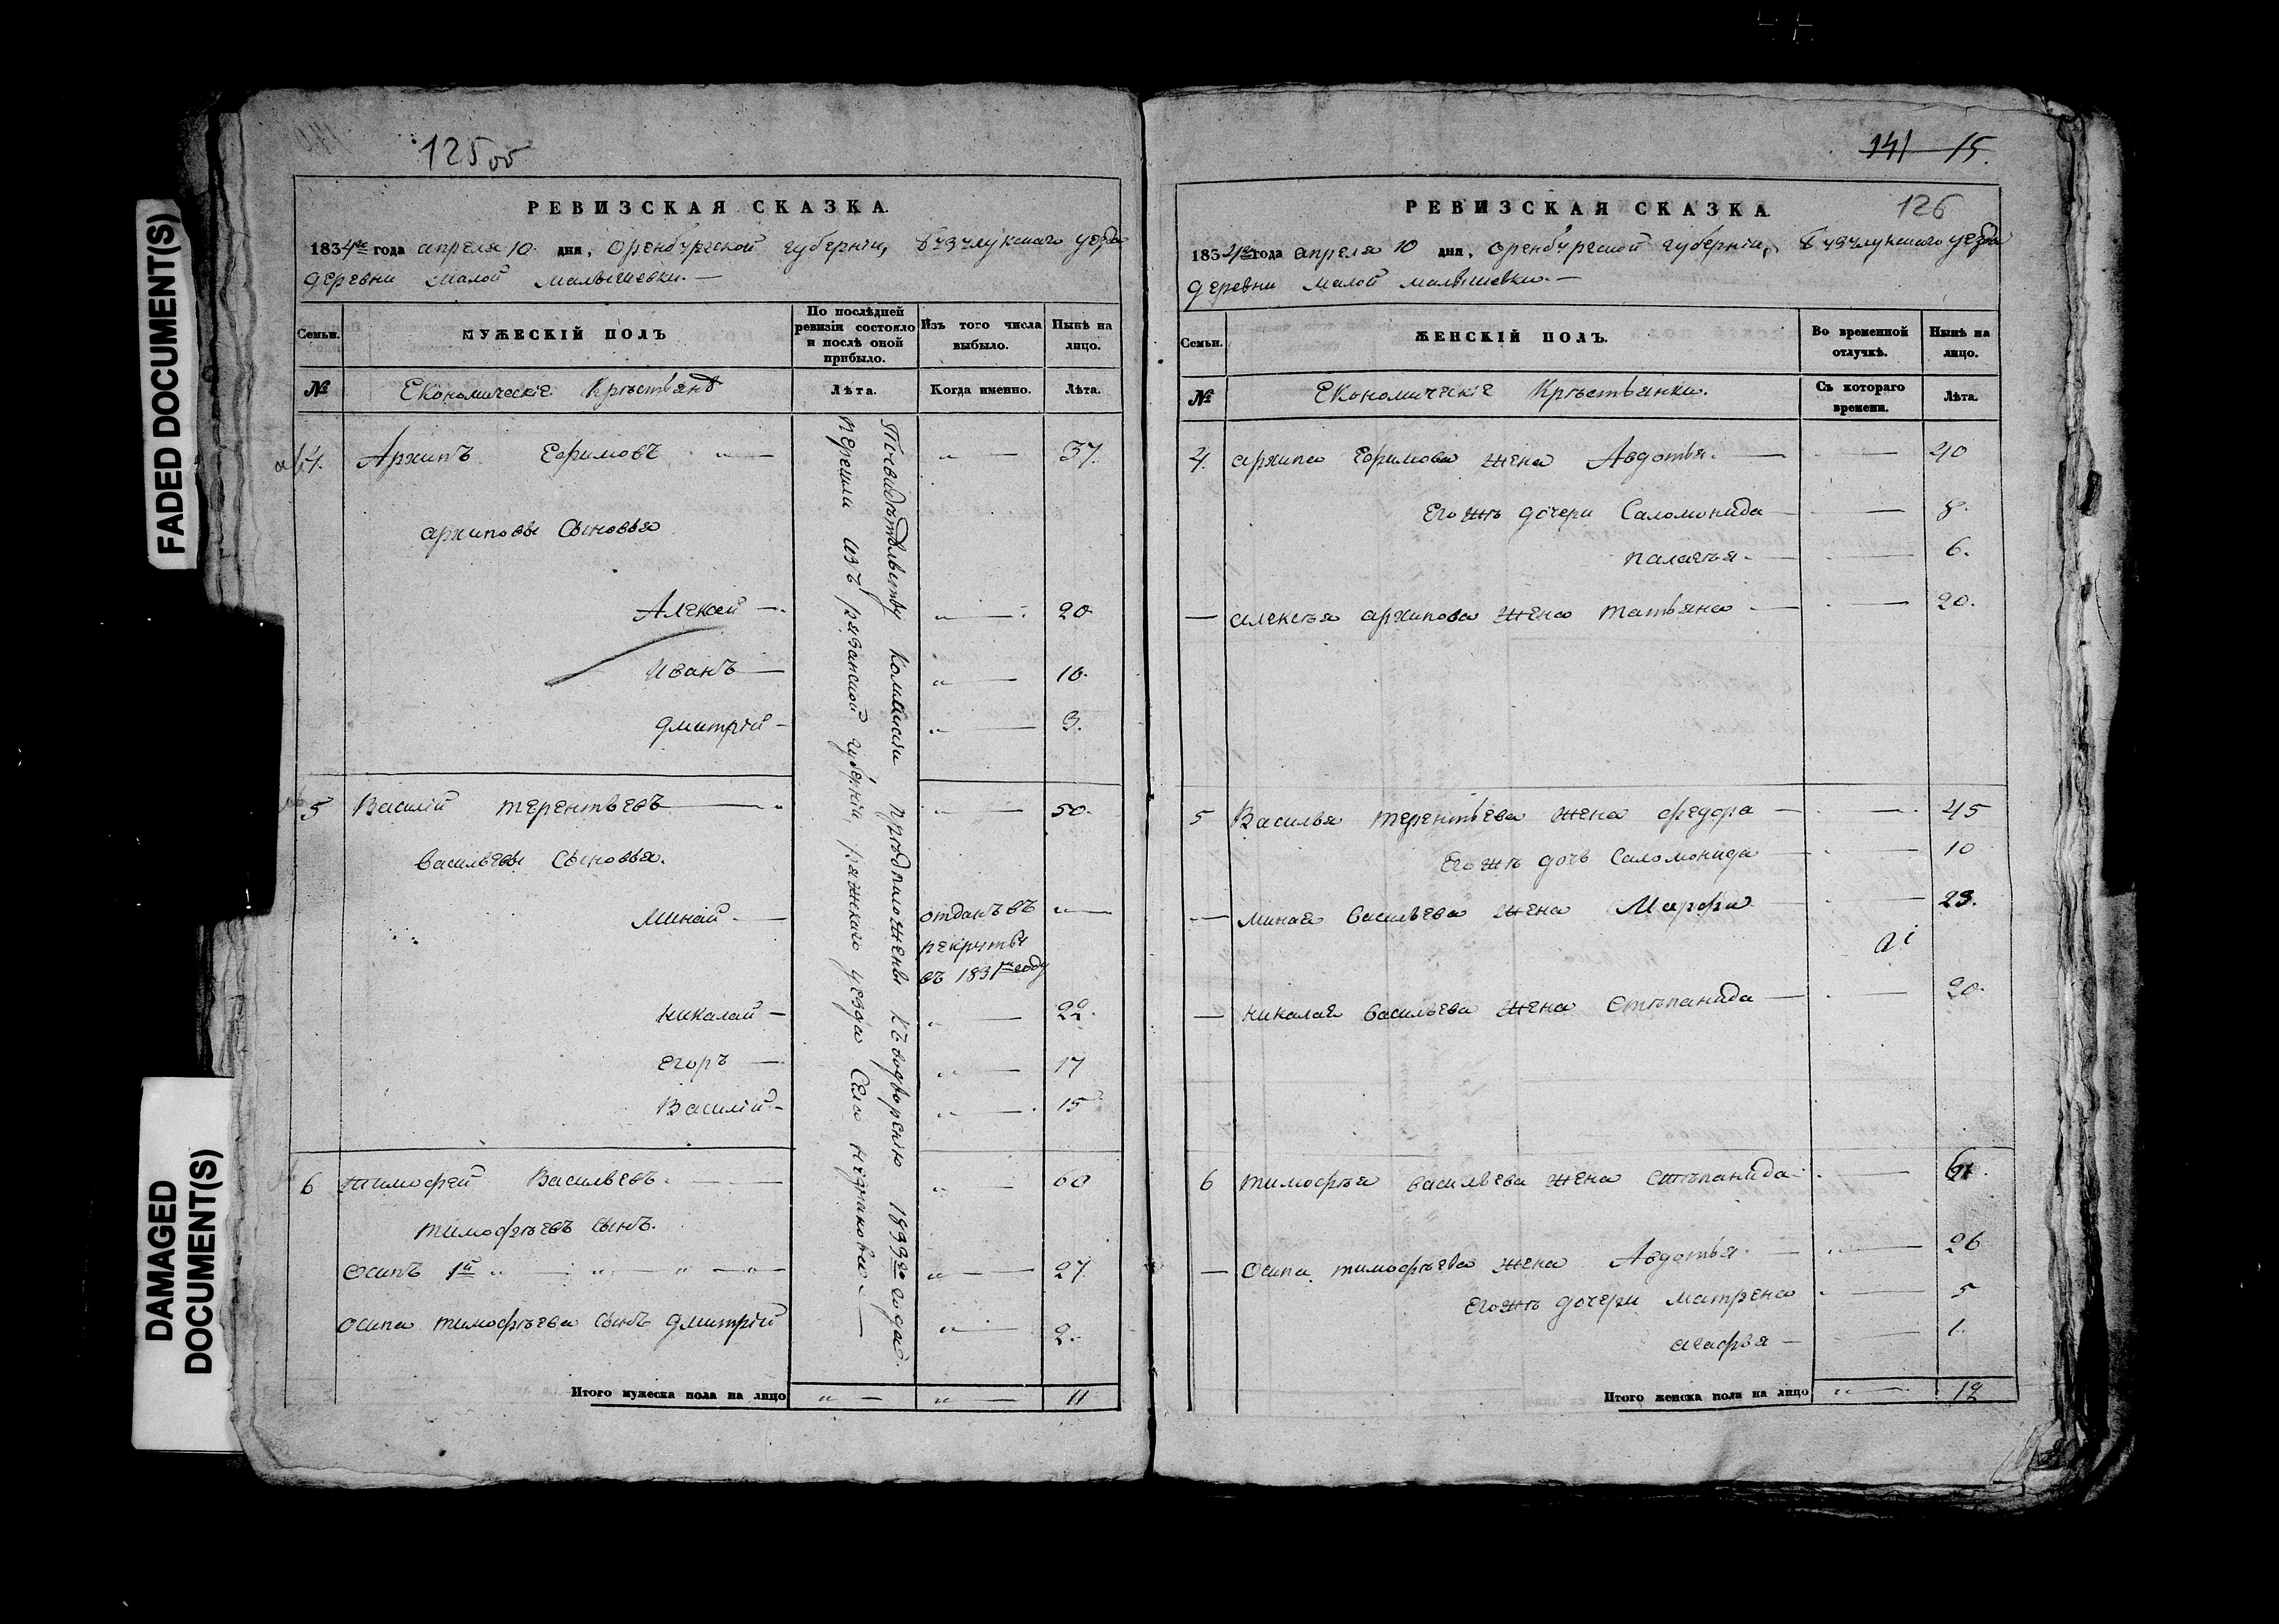 FADED DOCUMENT(S)
DAMAGED
DOCUMENT(S)
125 об
РЕВИЗСКАЯ СКАЗКА.
1834го года апреля 10 дня, Оренбургской губернии, Бузулукского уезда
деревни Малой Малышевки.—
Семьи.
МУЖЕСКІЙ ПОЛЪ
По послѣдней
ревизіи состояло
и послѣ оной
прибыло.
Изъ того числа
выбыло.
Нынѣ на
лицо.
№
Економическіе Крестьянѣ
Лѣта.
Когда именно.
Лѣта.
4. Архипъ Ефимовъ „ — „ — 37.
Архиповы Сыновья
Алексей — „ — 20
Иванъ — „ — 16.
Дмитрій — „ — 3.
5 Василій Терентьевъ — „ — 50.
Васильевы Сыновья.
Минай — отданъ въ „ —
рекруты
въ 1831м году
Николай — „ — 22.
Егоръ — „ — 17
Василій — „ — 15
6 Тимофей Васильевъ — „ — 60
Тимофѣевъ сынъ.
Осипъ 1й „ — „ — „ — „ — 27
Осипа Тимофѣева сынъ Дмитрій „ — 2.
Посвидѣтельству Коммисіи предположены Къ водворенію 1833го года.
перешли изъ рязанской губерніи, ряжскаго уезда Села незнакова.—
Итого мужеска пола на лицо „ — „ — 11
141 — 15.
126
РЕВИЗСКАЯ СКАЗКА.
1834го года апреля 10 дня, Оренбургской губерніи, Бузулукскаго уезда
деревни Малой Малышевки.—
Семьи.
ЖЕНСКІЙ ПОЛЪ.
Во временной
отлучкѣ.
Нынѣ на
лицо.
№
Економическіе Крестьянки.
Съ котораго
времени.
Лѣта.
4. Архипа Ефимова жена Авдотья. — — 40
Егожъ дочери Саломонида — — 8.
Палагѣя. — — 6.
— Алексѣя Архипова жена Татьяна — — 20.
5 Василья Терентьева жена Федора — — 45
Егожъ дочь Саломонида — 10
— Миная Васильева жена Марфа — 23.
— Николая Васильева жена Степанида — — 20.
6 Тимофѣя Васильева жена Степанида — — 61.
— Осипа Тимофѣева жена Авдотья — „ — 26
Егожъ дочери Матрена — 5
Агафья — — 1.
Итого женска пола на лицо „ — 12